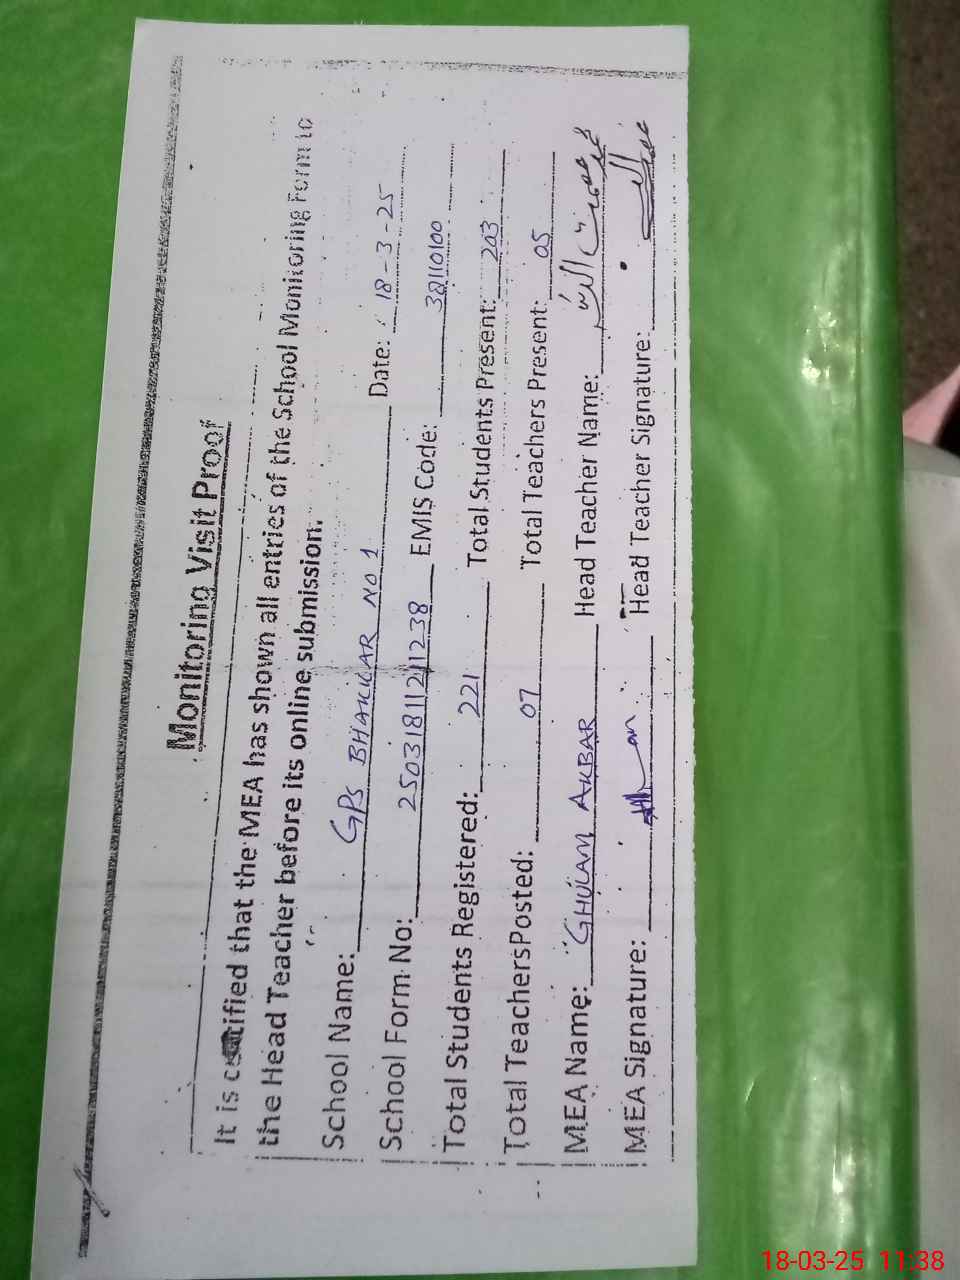 Monitoring Visit Proof
It is certified that the MEA has shown all entries of the School Monitoring Form to
the Head Teacher before its online submission.
School Name: GPS BHAKKAR NO 1 Date: 18-3-25
School Form No: 25031811211238 EMIS Code: 38110100
Total Students Registered: 221 Total Students Present: 203
Total Teachers Posted: 07 Total Teachers Present: 05
MEA Name: GHULAM AKBAR Head Teacher Name:
MEA Signature: Head Teacher Signature:
18-03-25 11:38